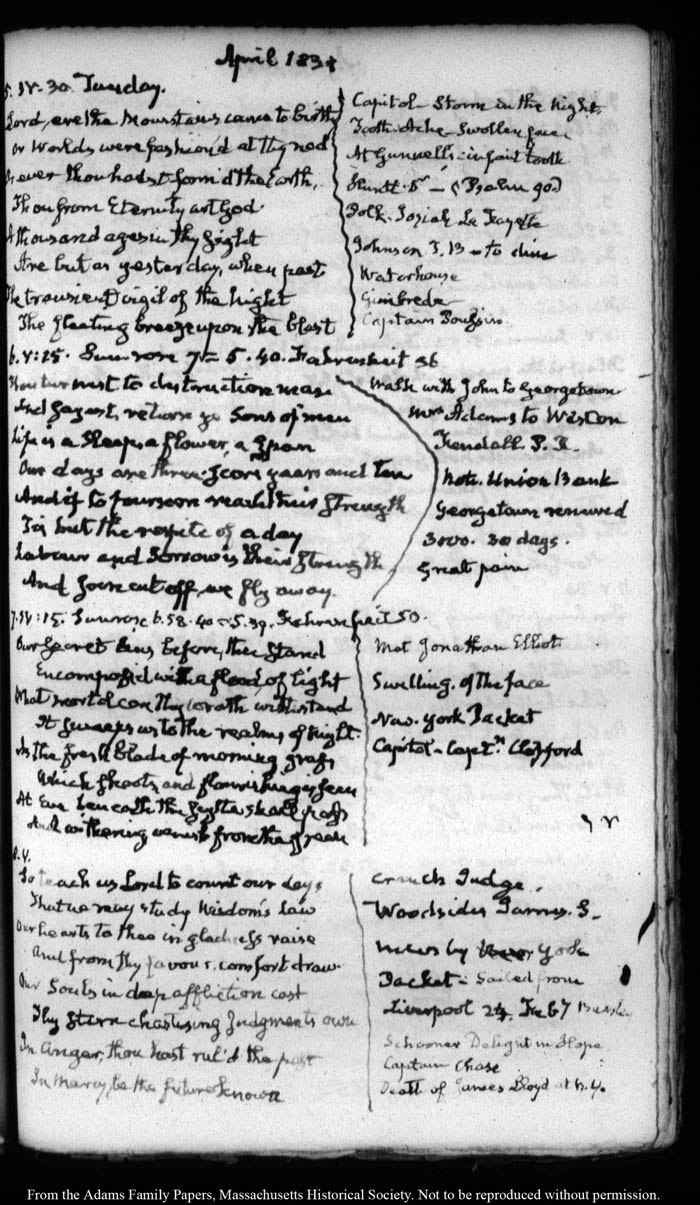 April 1834
5. IV-30 Tuesday.
Lord, ere the Mountains came to birth
Or Worlds were fashion'd at thy nod
Or ever thou hadst form'd the Earth,
Thou from Eternity art God.
A thousand ages in thy sight
Are but as yesterday, when past
The transient vigil of the night
The fleeting breeze upon the blast
Capitol - Storm in the night.
Tooth-Ache Swollen face
At Gunnell's infant tooth
Huntt. Dr - (Psalm 90)
Polk. Josiah La Fayette
Johnson J. B - to dine
Waterhouse
Gimbrede
Captain
6. V:25. Sun rose 5.40. Fahrenheit 36
Thou turnest to destruction
And sayest, return ye Sons of men
Life is a Sleep, a flower, a Span
Our days are three-score years and ten
And if to fourscore reach their strength
Tis but the respite of a day
Labour and Sorrow is their strength
And soon cut off, we fly away.
Walk with John to Georgetown
Mrs Adams to Weston
Kendall. P. K.
Note. Union Bank
Georgetown renewed
3000. 30 days.
Great pain
7. IV:15. Sunrose 5.39. Fahrenheit 50.
Our Secret Sins before thee stand
Encompass'd with a flood of light
What mortal can thy wrath withstand
It sweeps us to the realms of Night.
As the fresh blade of morning grass
Which shoots, and flourishing is seen
At Eve beneath the scythe shall pass
And withering vanish from the green
Met Jonathan Elliot
Swelling of the face
New-York Packet
Capitol - Captn. Clifford
8. V.
So teach us Lord to count our days
That we may study Wisdom's Law
Our hearts to thee in gladness raise
And from thy favour, comfort draw.
Our Souls in deep affliction cast
Thy stern chastising Judgments own
In Anger, thou hast rul'd the past
In Mercy, be the future known
Cranch Judge.
Woodside James. S.
news by New York
Packet - Sailed from
Liverpool 24. Feb
Schooner Delight in Hope
Captain Chase
Death of James Lloyd at N. Y.
From the Adams Family Papers, Massachusetts Historical Society. Not to be reproduced without permission.